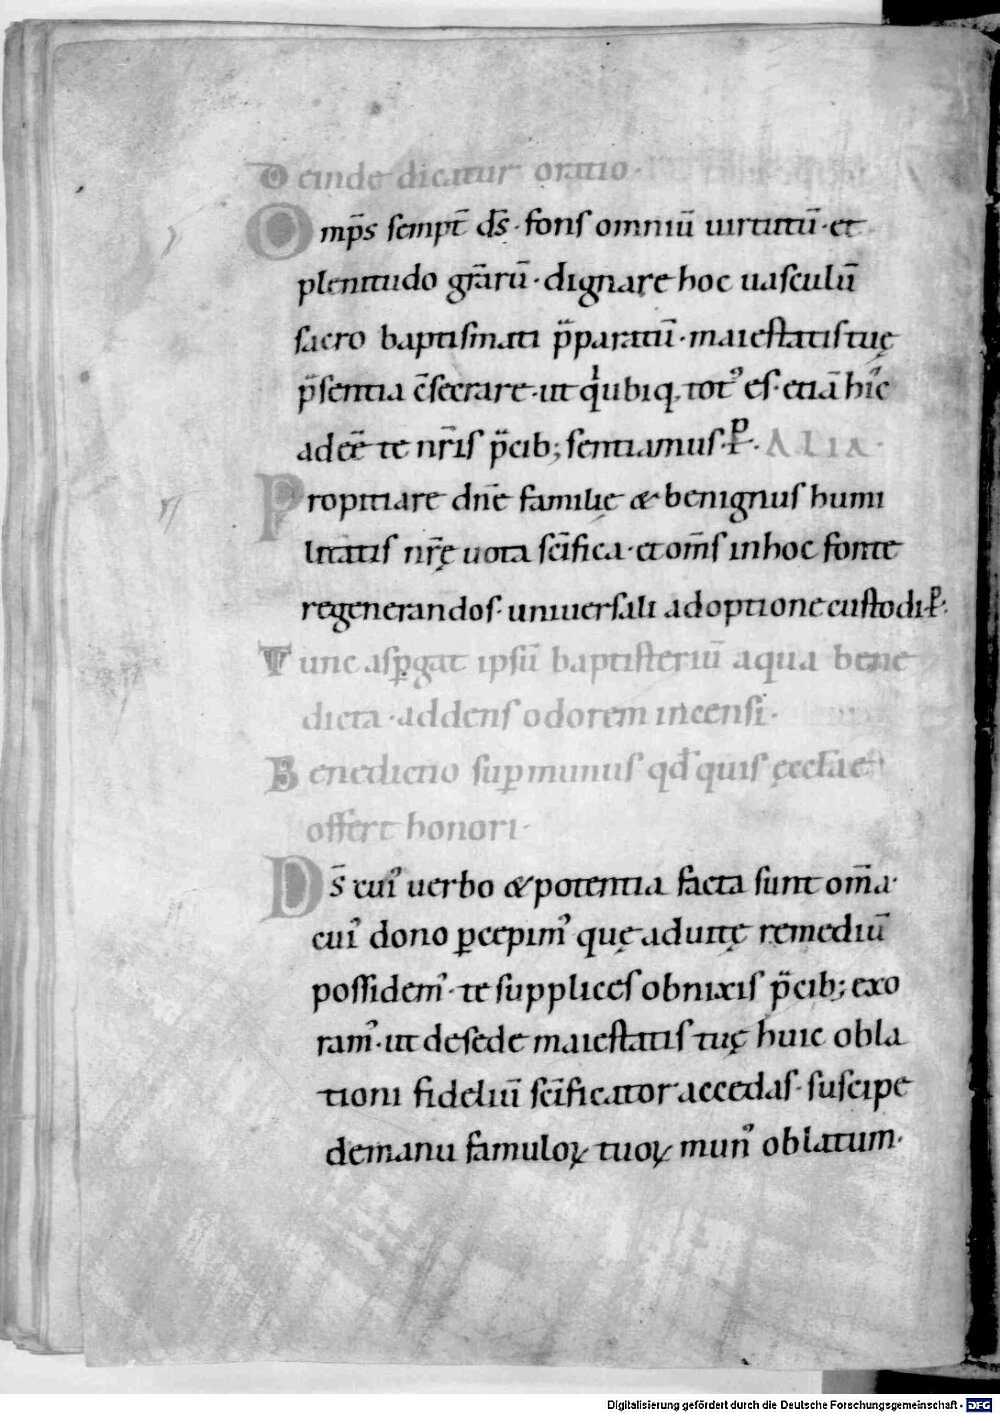 Deinde dicatur oratio·
Omp̄s sempt̄ d̄s· fons omniū uirtutū· et
plenitudo gr̄arū· dignare hoc uasculū
sacro baptismati p̄paratū· maiestatis tuę
p̄sentia c̄secrare· ut qͥ ubiq; totꝰ es· etiā hīc
adeē te nr̄is p̄cib; sentiamus· P̱· ALIA·
Propitiare dn̄e familię & benignus humi
litatis nr̄ę uota sc̄ifica· et om̄s in hoc fonte
regenerandos· uniuersali adoptione custodi· P̱·
Tunc asꝑgat ipsū baptisteriū aqua bene
dicta· addens odorem incensi·
Benedictio suꝑ munus qđ quis ęcclae
offert honori·
Ds̄ cuiꝰ uerbo & potentia facta sunt om̄a·
cuiꝰ dono ꝑcepimꝰ quę ad uitę remediū
possidemꝰ· te supplices obnixis p̄cib; exo
ramꝰ· ut de sede maiestatis tuę huic obla
tioni fideliū sc̄ificator accedas· suscipe
de manu famuloꝝ tuoꝝ munꝰ oblatum·
Digitalisierung gefördert durch die Deutsche Forschungsgemeinschaft - DFG